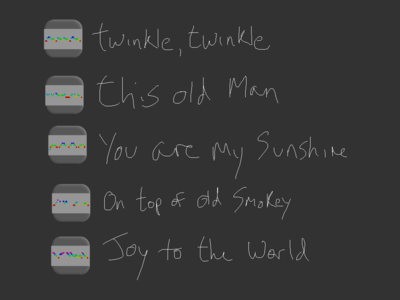 twinkle, twinkle
this old Man
You are My Sunshine
On top of old Smokey
Joy to the World